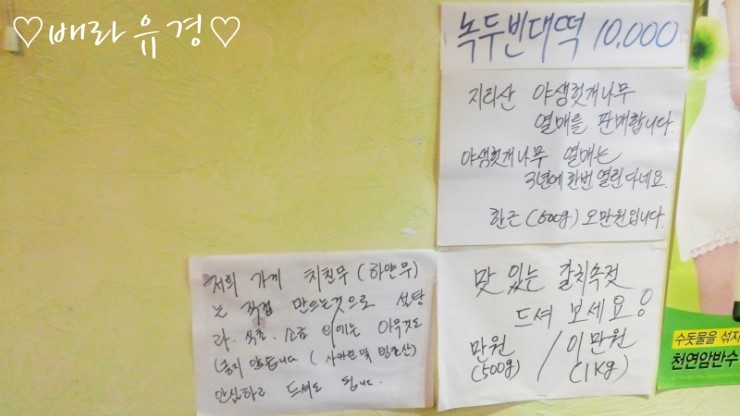 ♡배라유경♡
녹두빈대떡 10,000
지리산 야생헛개나무
열매를 판매합니다.
야생헛개나무 열매는
3년에 한번 열린다네요.
한근 (600g) 오만원입니다.
저희 가게 치킨무 (하얀무)
는 직접 만드는것으로 설탕
과. 식초. 소금 이외에는 아무것도
넣지 않습니다 (사카린 및 빙초산)
안심하고 드셔도 됩니다.
맛 있는 갈치속젓
드셔 보세요!
만원 / 이만원
(500g) (1kg)
수돗물을 섞지
천연암반수